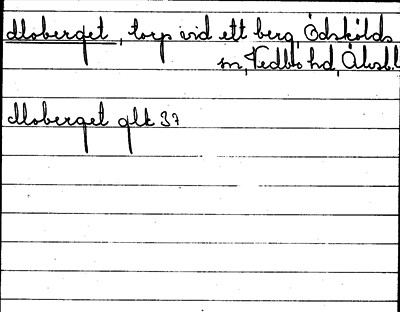 Moberget, torp vid ett berg, Ödskölds
sn, Vedbo hd, Älvsb.l
Moberget glk 37